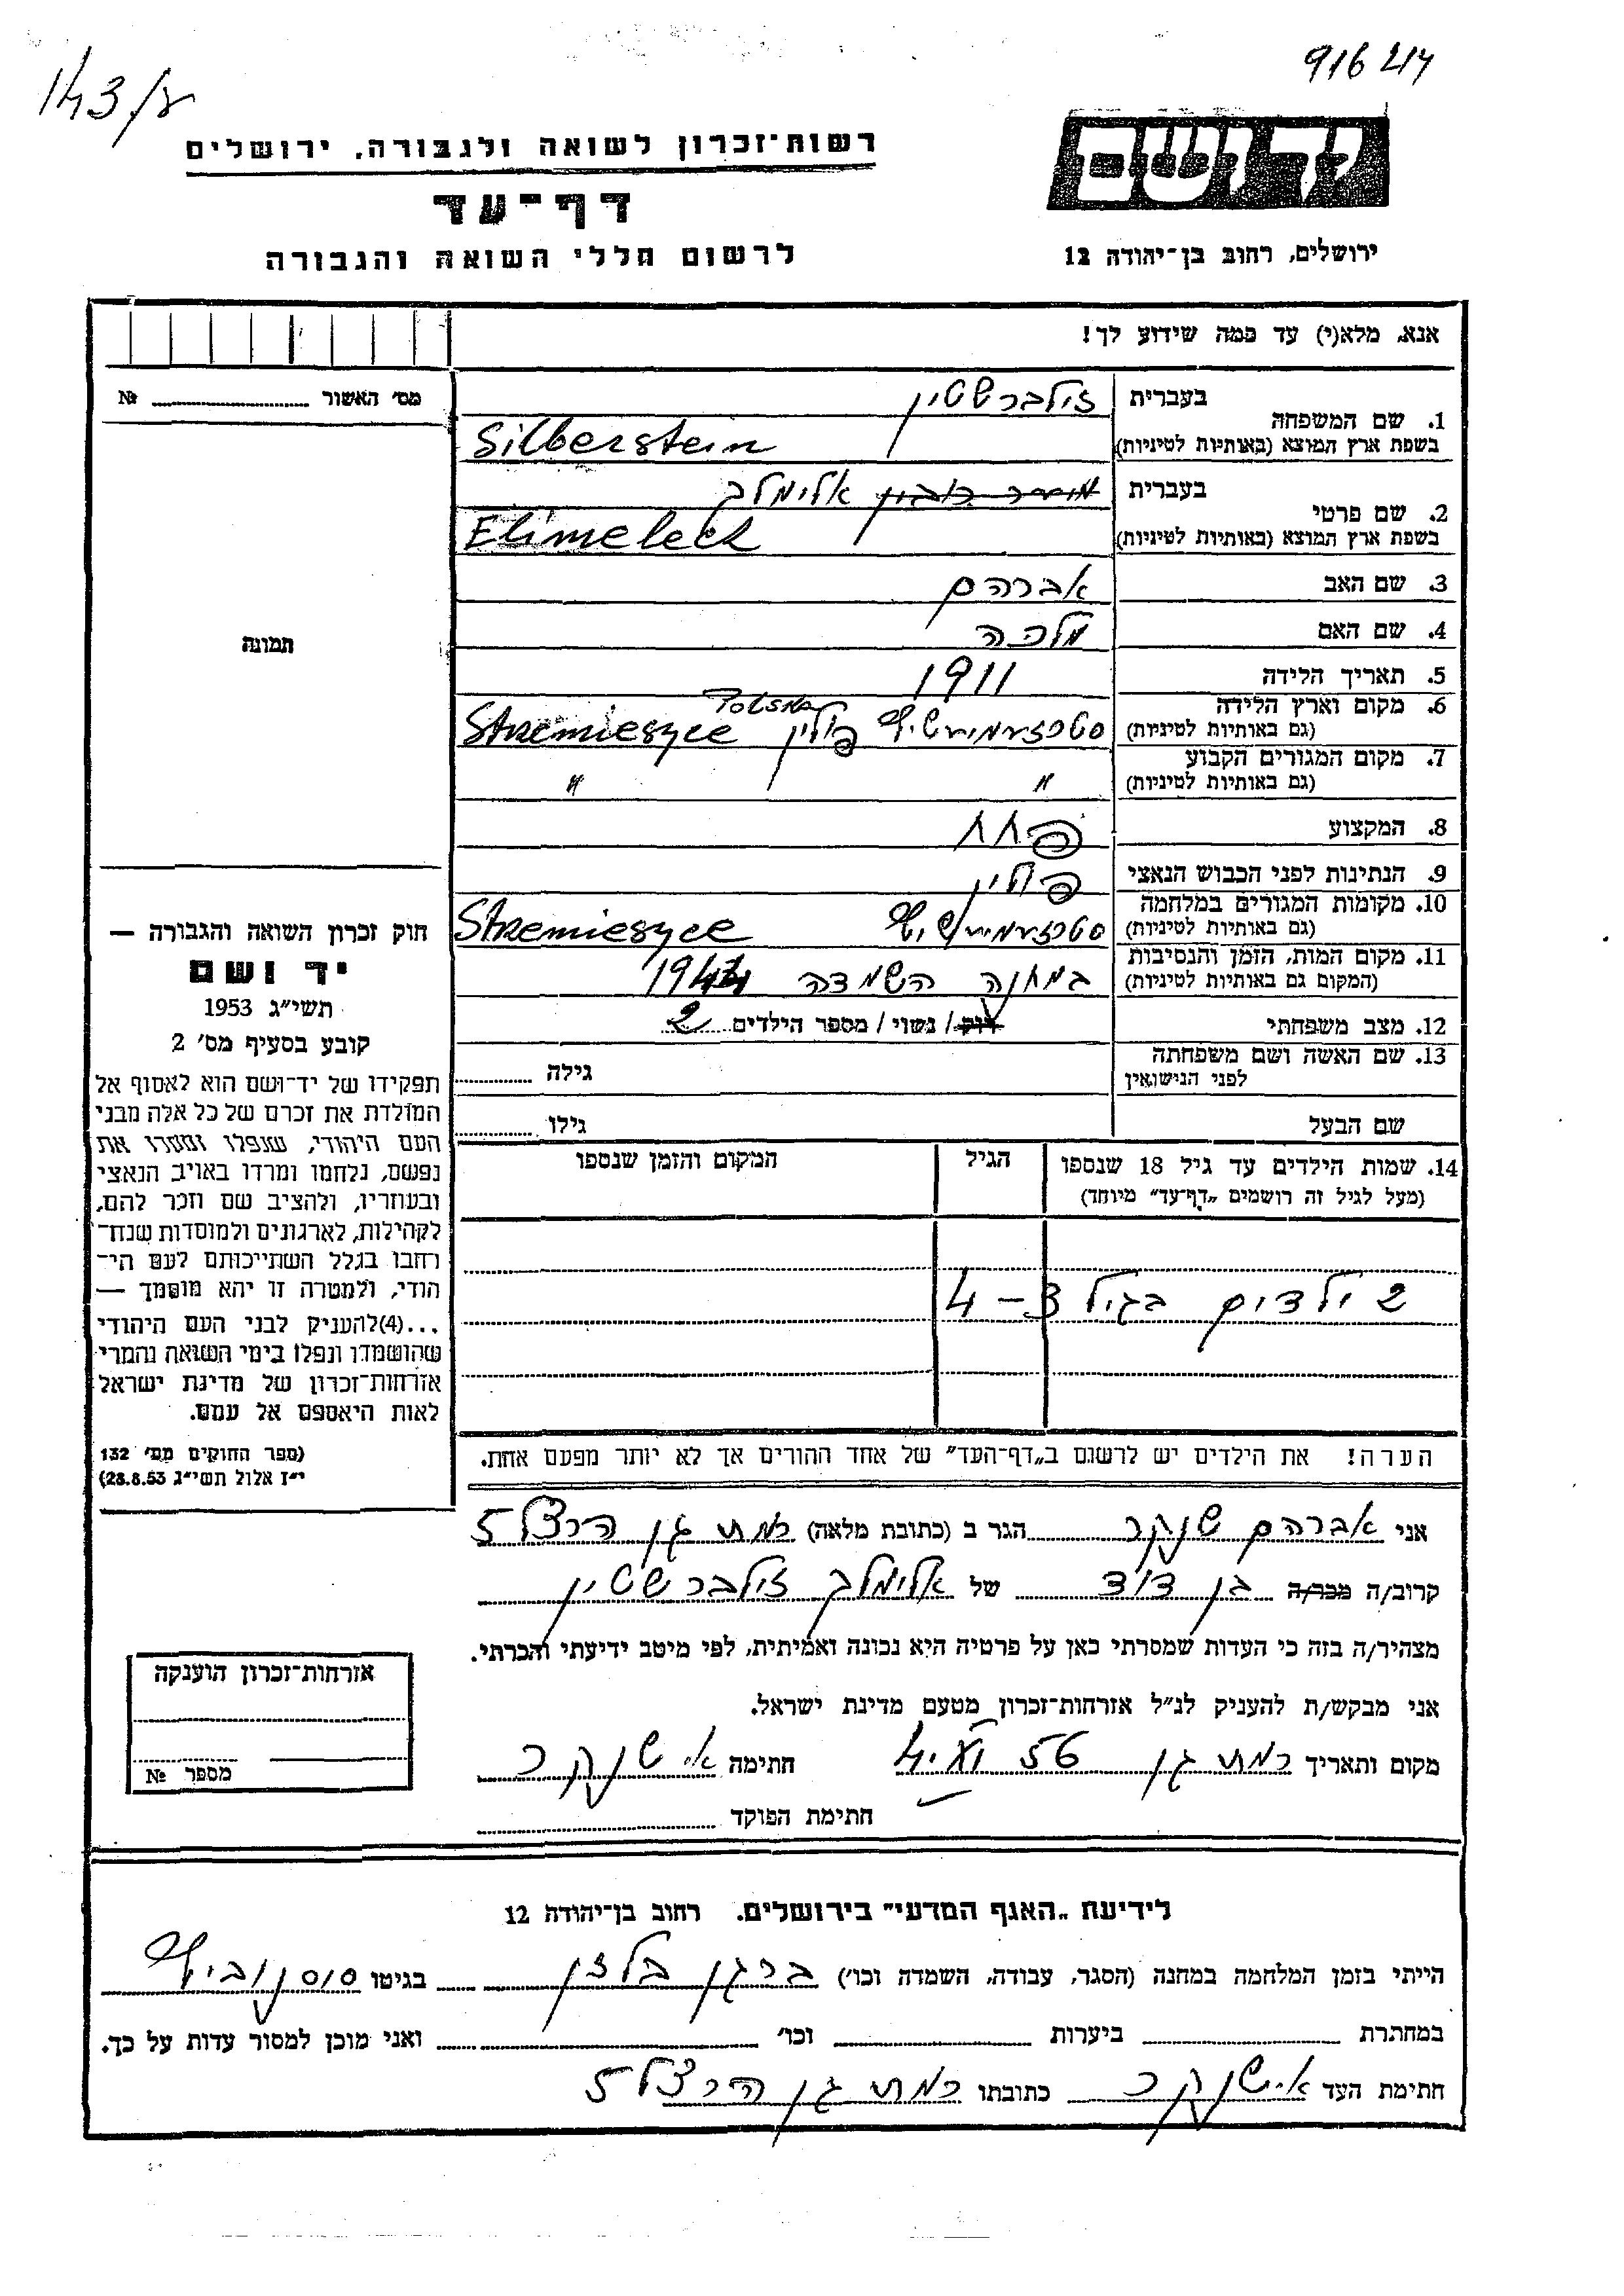 143/ע
916 417
יד ושם
רשות־זכרון לשואה ולגבורה, ירושלים
דף־עד
לרשום חללי השואה והגבורה
ירושלים, רחוב בן־יהודה 12
אנא, מלא(י) עד כמה שידוע לך!
מס׳ האשור № 
1. שם המשפחה בעברית זילברשטיין
בשפת ארץ המוצא (באותיות לטיניות) Silberstein
2. שם פרטי בעברית אלימלך
בשפת ארץ המוצא (באותיות לטיניות) Elimelech
3. שם האב אברהם
4. שם האם מלכה
5. תאריך הלידה 1911
6. מקום וארץ הלידה
(גם באותיות לטיניות) פולין Strzemieszyce
7. מקום המגורים הקבוע
(גם באותיות לטיניות) " "
8. המקצוע פחח
9. הנתינות לפני הכבוש הנאצי פולין
10. מקומות המגורים במלחמה
(גם באותיות לטיניות) Strzemieszyce
11. מקום המות, הזמן והנסיבות
(המקום גם באותיות לטיניות) במחנה השמדה 1944
12. מצב משפחתי רוק / נשוי / מספר הילדים 2
13. שם האשה ושם משפחתה
לפני הנישואין גילה
שם הבעל גילו
14. שמות הילדים עד גיל 18 שנספו הגיל המקום והזמן שנספו
(מעל לגיל זה רושמים „דף־עד" מיוחד)
2 ילדים בגיל 3 – 4
הערה! את הילדים יש לרשום ב„דף־העד" של אחד ההורים אך לא יותר מפעם אחת.
תמונה
חוק זכרון השואה והגבורה —
יד ושם
תשי״ג 1953
קובע בסעיף מס׳ 2
תפקידו של יד־ושם הוא לאסוף אל
המולדת את זכרם של כל אלה מבני
העם היהודי, שנפלו ומסרו את
נפשם, נלחמו ומרדו באויב הנאצי
ובעוזריו, ולהציב שם וזכר להם,
לקהילות, לארגונים ולמוסדות שנח־
רבו בגלל השתייכותם לעם הי־
הודי, ולמטרה זו יהא מוסמך —
...(4)להעניק לבני העם היהודי
שהושמדו ונפלו בימי השואה והמרי
אזרחות־זכרון של מדינת ישראל
לאות היאספם אל עמם.
(ספר החוקים מס׳ 132
י״ז אלול תשי״ג 28.8.53)
אני אברהם שנקר הגר ב (כתובת מלאה) רמת גן הרצל 5
קרוב/ה מכר/ה בן דוד של אלימלך זילברשטיין
מצהיר/ה בזה כי העדות שמסרתי כאן על פרטיה היא נכונה ואמיתית, לפי מיטב ידיעתי והכרתי.
אני מבקש/ת להעניק לנ״ל אזרחות־זכרון מטעם מדינת ישראל.
מקום ותאריך רמת גן 56 חתימה א. שנקר
חתימת הפוקד
אזרחות־זכרון הוענקה
מספר №
לידיעת „האגף המדעי" בירושלים. רחוב בן־יהודה 12
הייתי בזמן המלחמה במחנה (הסגר, עבודה, השמדה וכו׳) ברגן בלזן בגיטו סוסנוביץ
במחתרת ביערות וכו׳ ואני מוכן למסור עדות על כך.
חתימת העד א. שנקר כתובתו רמת גן הרצל 5